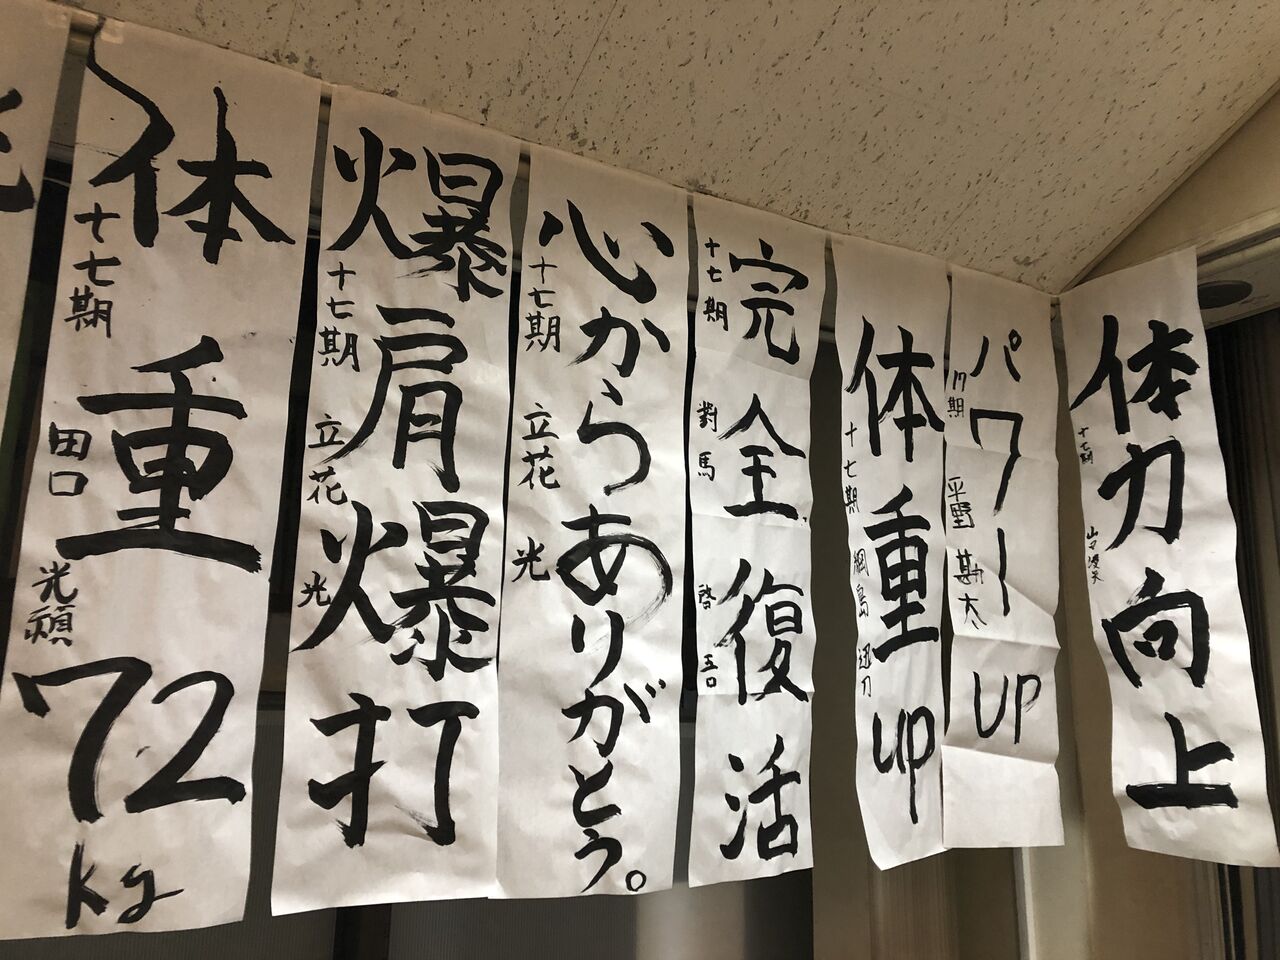 体力向上
十七期
パワーUP
17期 平野 勘太
体重UP
十七期 綱島 迅刀
完全復活
十七期 對馬 啓吾
心からありがとう。
十七期 立花 光
爆肩爆打
十七期 立花 光
体重72kg
十七期 田口 光頑